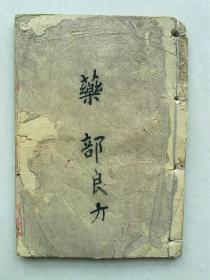 藥部良方